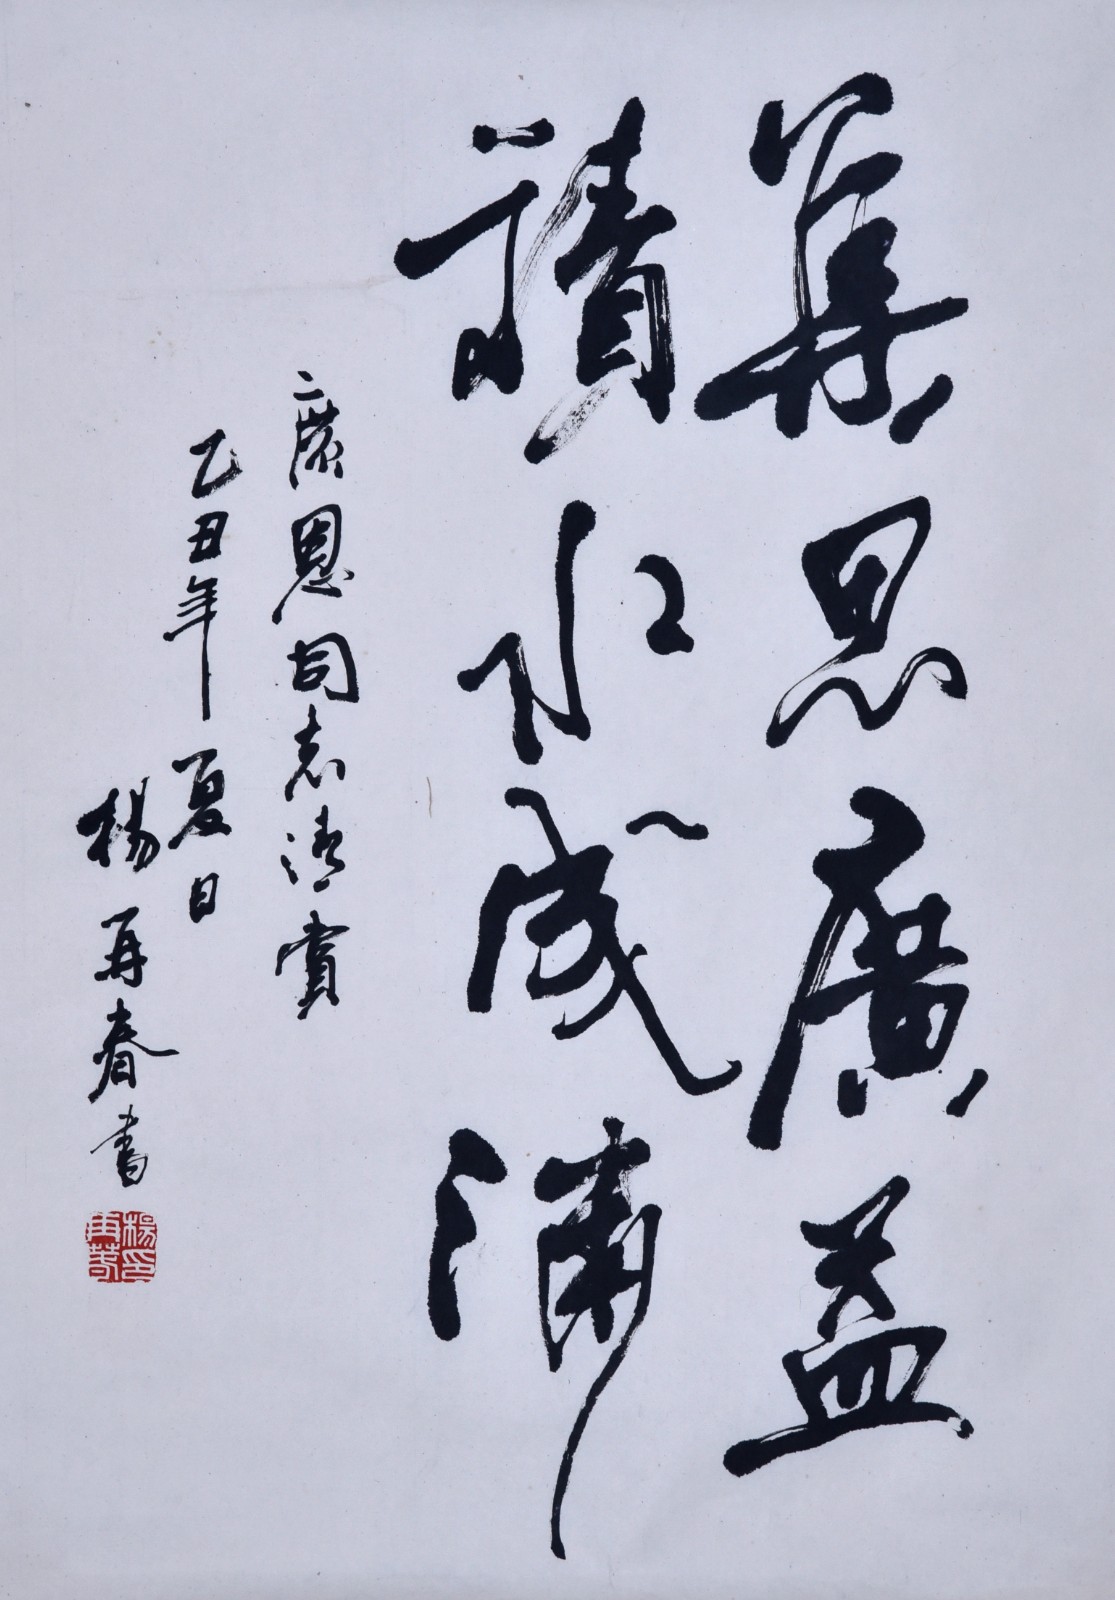 集思廣益
積水成淵
廣恩同志清賞
乙丑年夏日
楊再春書
楊再春印